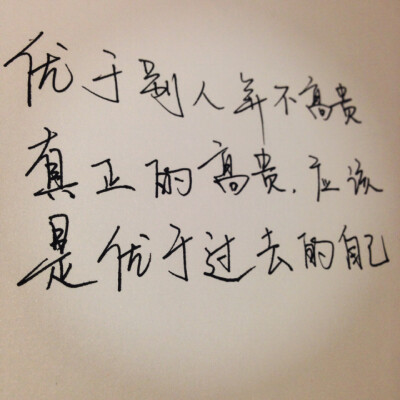 优于别人并不高贵
真正的高贵.应该
是优于过去的自己